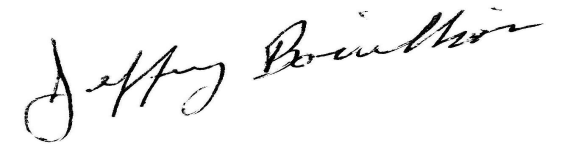 Jeffrey Bouillion